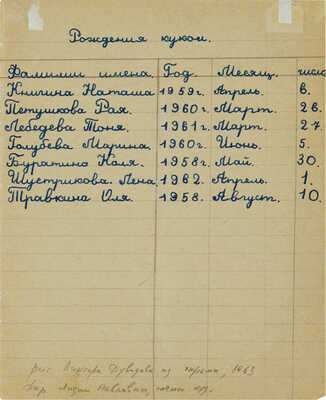 Рождения кукол.
Фамилии имена. Год. Месяц. число
Книгина Наташа 1959г. Апрель. 8.
Петушкова Рая. 1960г. Март. 28.
Лебедева Тоня. 1961г. Март. 27.
Голубева Марина. 1960г. Июнь. 5.
Буратино Коля. 1958г. Май. 30.
Шустрикова. Лена. 1962. Апрель. 1.
Травкина Оля. 1958. Август. 10.
рис. Виктора из 1963